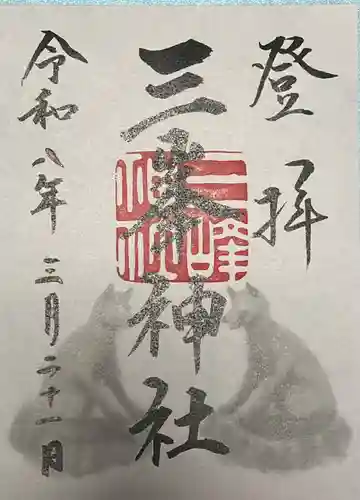 登拝
三峯神社
令和八年三月二十一日
三峰神社